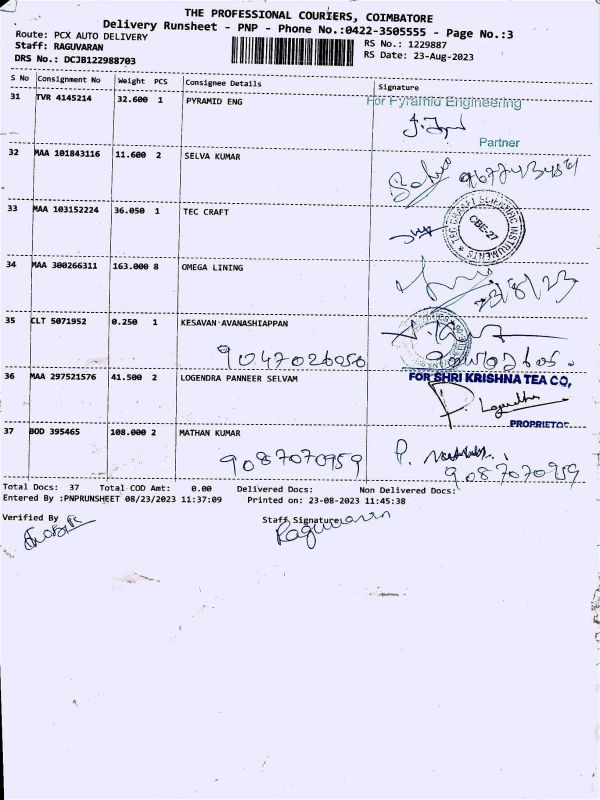 THE PROFESSIONAL COURIERS, COIMBATORE
Delivery Runsheet - PNP - Phone No.:0422-3505555 - Page No.:3
Route: PCX AUTO DELIVERY
RS No.: 1229887
Staff: RAGUVARAN
RS Date: 23-Aug-2023
DRS No.: DCJB122988703
S No Consignment No Weight PCS Consignee Details Signature
31 TVR 4145214 32.600 1 PYRAMID ENG
For Pyramid Engineering
Partner
32 MAA 101843116 11.600 2 SELVA KUMAR
33 MAA 103152224 36.050 1 TEC CRAFT
TEC CRAFT SCIENTIFIC INSTRUMENTS
CBE-27
34 MAA 300266311 163.000 8 OMEGA LINING
35 CLT 5071952 0.250 1 KESAVAN AVANASHIAPPAN
9047026050
36 MAA 297521576 41.500 2 LOGENDRA PANNEER SELVAM
FOR SHRI KRISHNA TEA CO,
PROPRIETOR
37 BOD 395465 108.000 2 MATHAN KUMAR
9087070959
9087070959
Total Docs: 37 Total COD Amt: 0.00 Delivered Docs: Non Delivered Docs:
Entered By :PNPRUNSHEET 08/23/2023 11:37:09 Printed on: 23-08-2023 11:45:38
Verified By Staff Signature
Raguvaran